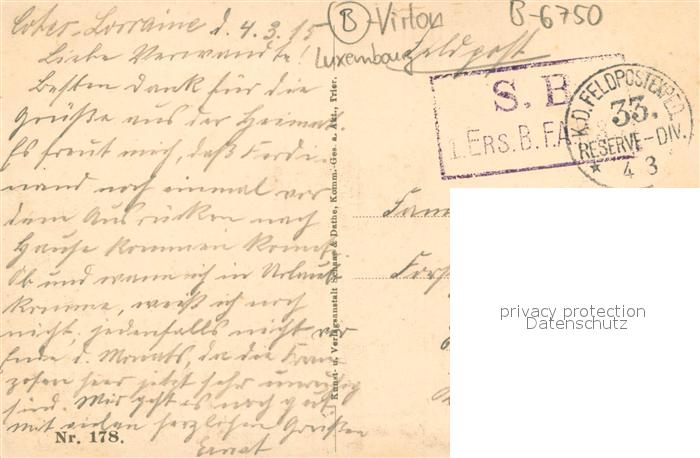 Cotes-Lorraine d. 4.3.15
Liebe Verwandte!
Besten Dank für die
Grüße aus der Heimat.
Es freut mich, daß Ferdi-
nand noch einmal vor
dem Ausrücken nach
Hause kommen konnte.
Ob und wann ich in Urlaub
komme, weiß ich noch
nicht, jedenfalls nicht vor
Ende d. Monats, da die Fran-
zosen hier jetzt sehr unruhig
sind. Mir geht es noch gut.
Mit vielen herzlichen Grüßen
Ernst
Nr. 178.
Kunst- u. Verlagsanstalt Schaar & Dathe, Komm.-Ges. a. Akt., Trier.
B-Virton
Luxembourg
B-6750
Feldpost
S. B
1. ERS. B. F.A
K.D. FELDPOSTEXPED.
33.
RESERVE-DIV.
* 4 3
Fam
privacy protection
Datenschutz